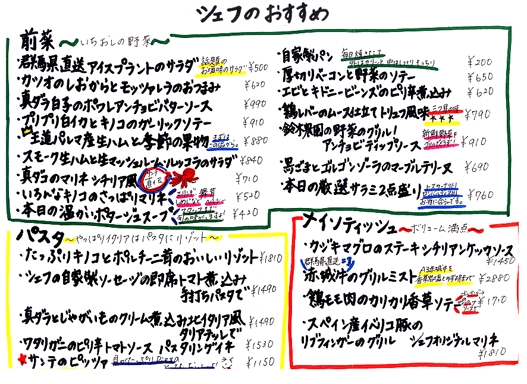 シェフのおすすめ
前菜 〜いちおしの野菜〜
・群馬県直送アイスプラントのサラダ 話題のお塩味のサラダ ¥500
・カツオのしおからとモッツァレラのおつまみ ¥620
・真ダラ白子のポワレアンチョビバターソース ¥990
・プリプリ白イカとキノコのガーリックソテー ¥910
・王道パルマ産生ハムと季節の果物 ¥880
・スモーク生ハムと生マッシュルーム・ルッコラのサラダ ¥840
・真ダラのマリネ シチリア風 ¥710
・いろんなキノコのさっぱりマリネ ¥520
・本日の温かいポタージュスープ ¥420
・自家製パン ¥200
・厚切りベーコンと野菜のソテー ¥650
・エビとキドニービーンズのピリ辛煮込み ¥620
・鶏レバーのムース仕立てトリュフ風味 ¥790
・鈴木農園の野菜のグリル!
アンチョビディップソース ¥910
・黒ごまとゴルゴンゾーラのマーブルテリーヌ ¥690
・本日の厳選サラミ2点盛り ¥760
パスタ 〜やっぱりイタリアはパスタにリゾット〜
・たっぷりキノコとポルチーニ茸のおいしいリゾット ¥1810
・シェフの自家製ソーセージの即席トマト煮込み
手打ちパスタで ¥1490
・真ダラとじゃがいものクリーム煮込み北イタリア風
タリアテッレで ¥1490
・ワタリガニのピリ辛トマトソース パスタリングイネ ¥1530
★サンテのピッツァ ¥1150
メインディッシュ 〜ボリューム満点〜
・カジキマグロのステーキシチリアンケッカソース ¥1450
群馬県直送
・赤城牛のグリルミスト ¥2880
・鶏もも肉のカリカリ香草ソテー ¥1710
・スペイン産イベリコ豚の
リブフィンガーのグリル シェフオリジナルマリネ
¥1810